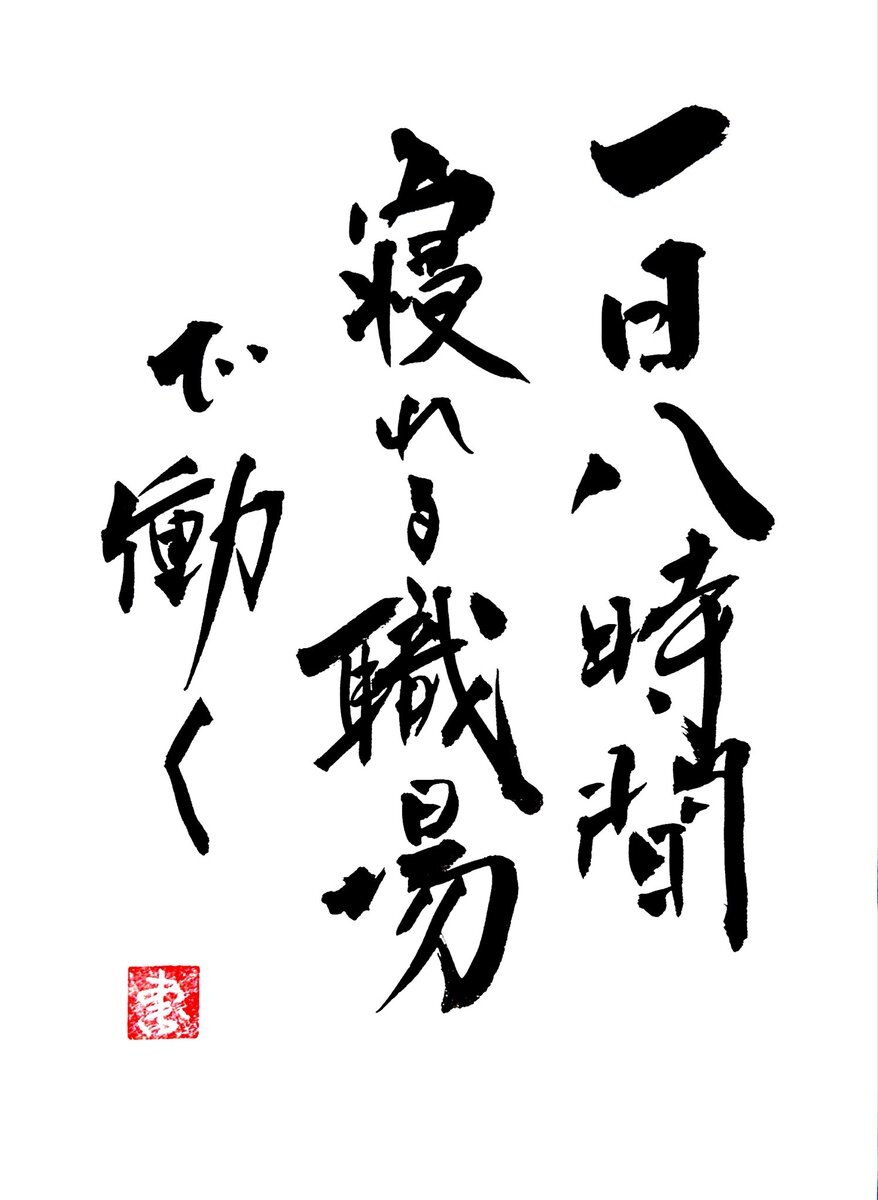 一日八時間
寝れる職場
で働く